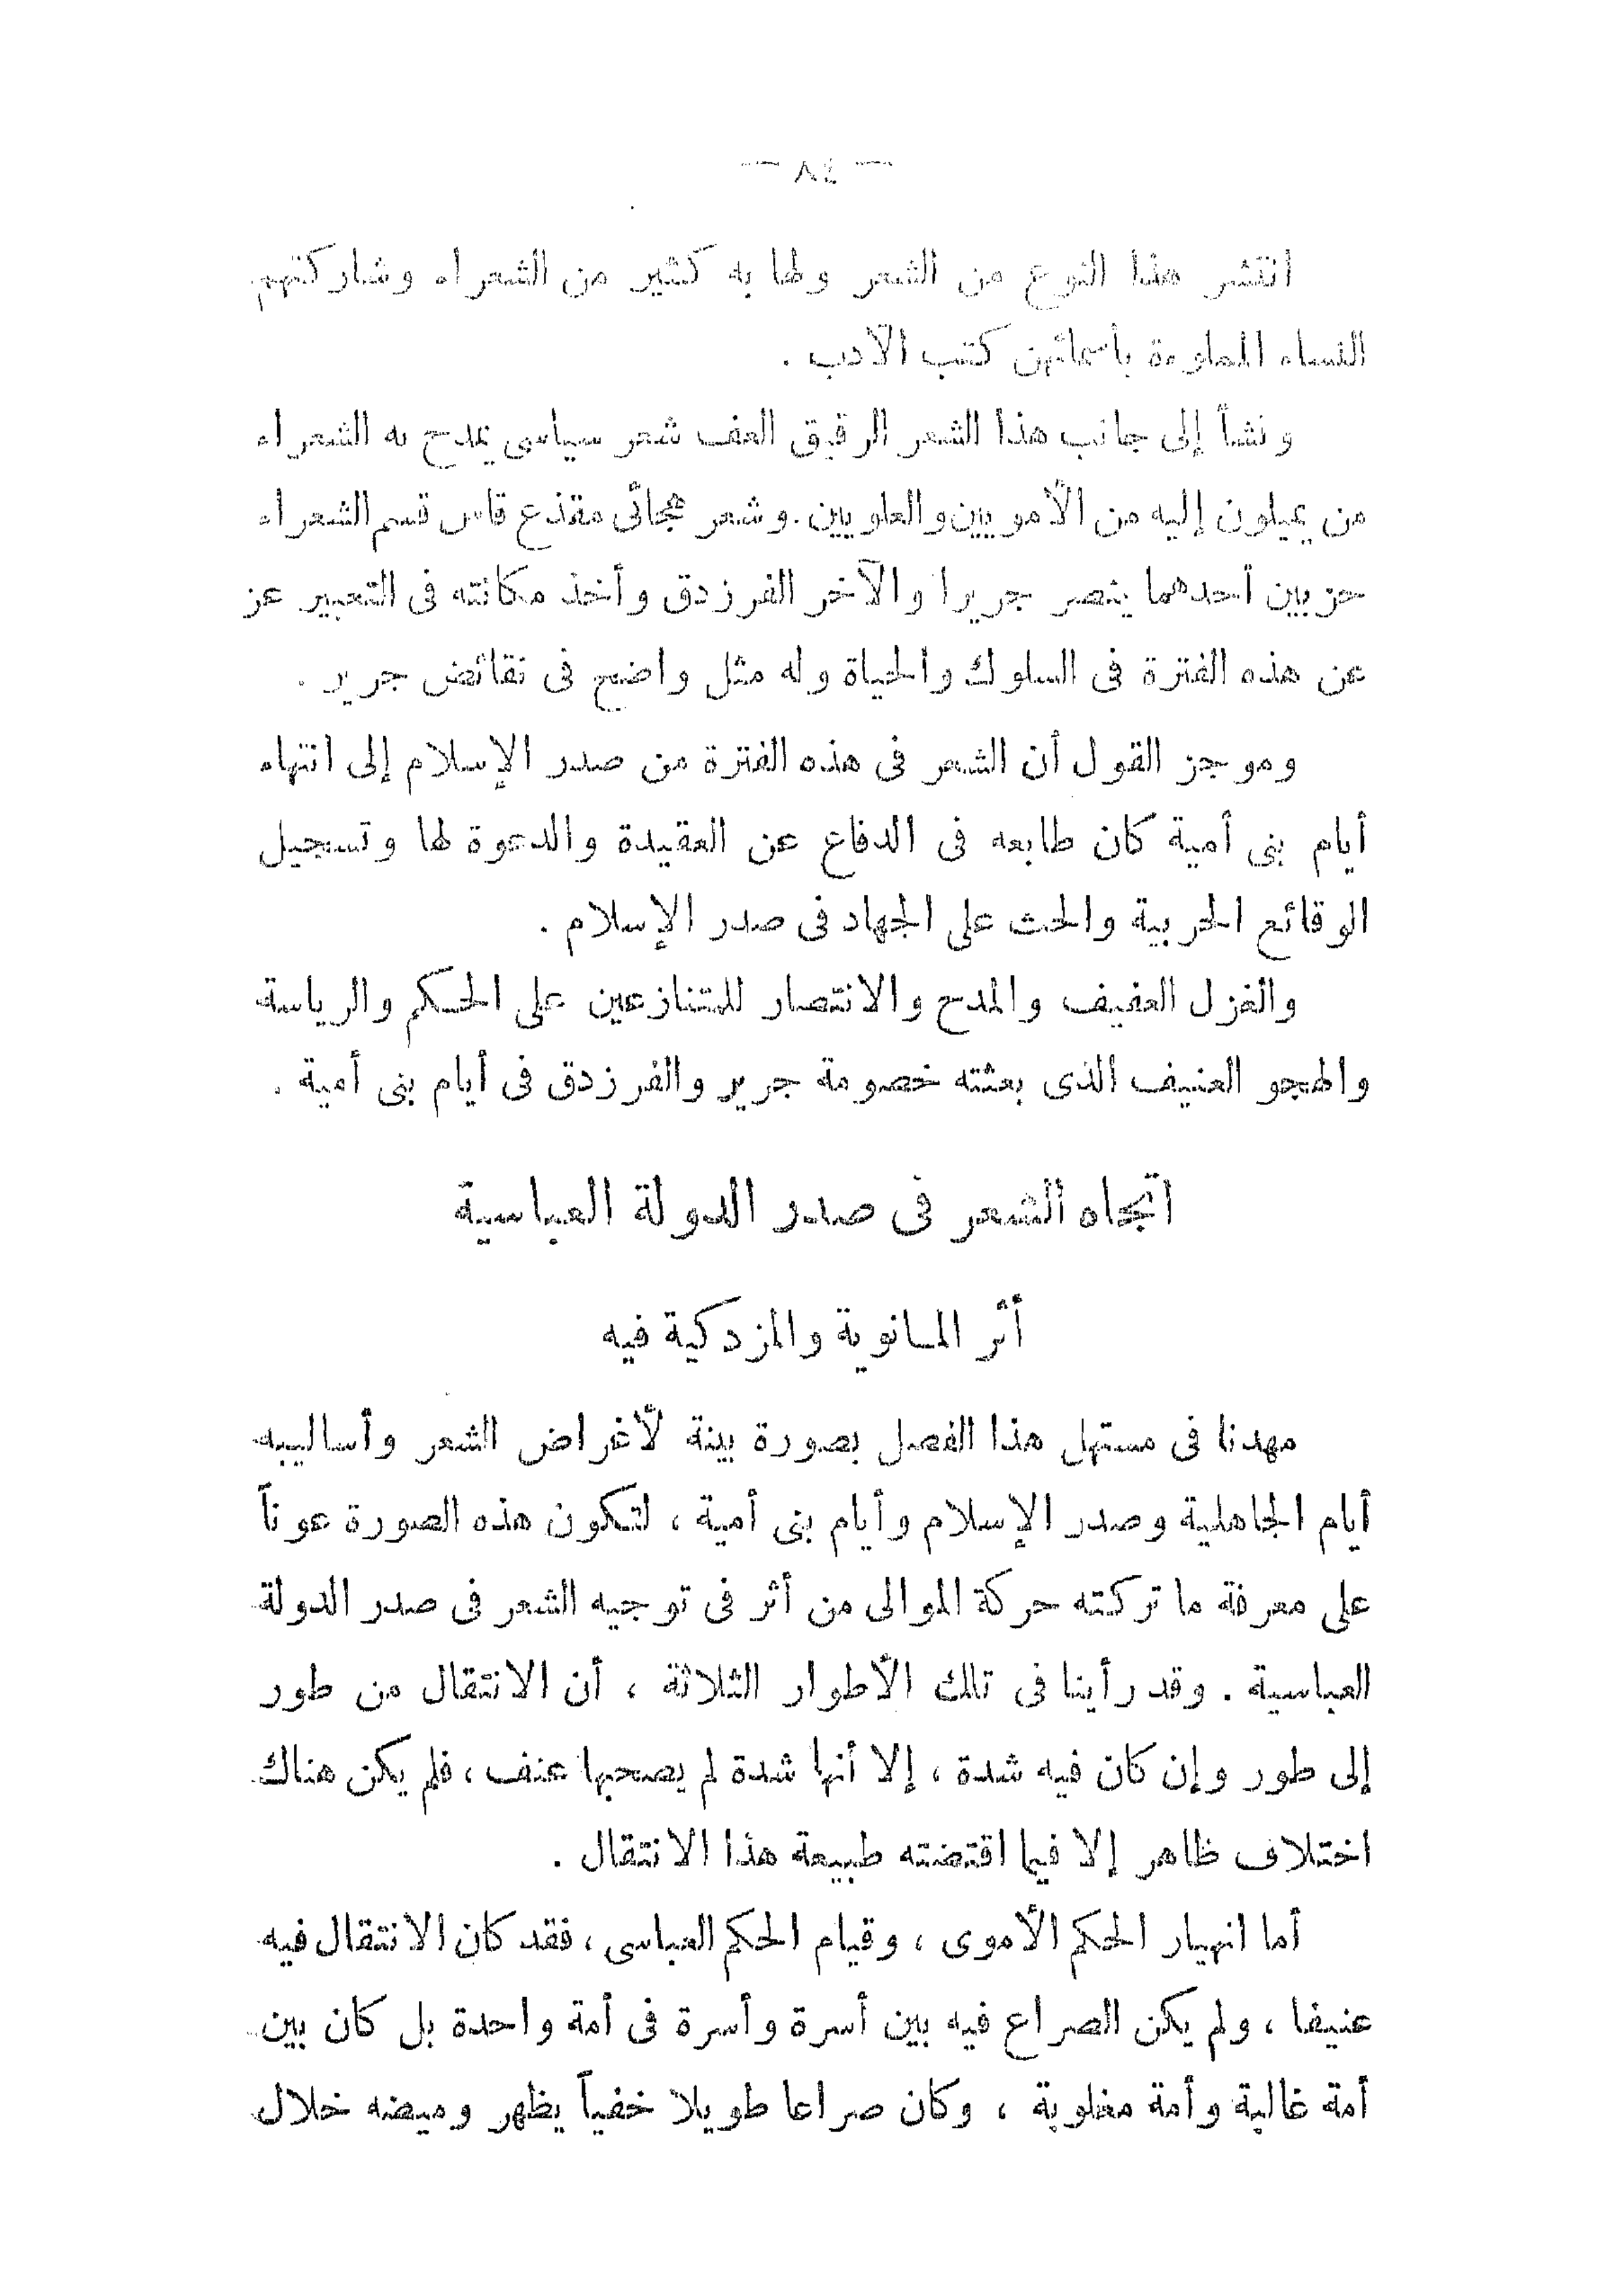 — ٨٤ —
انتشر هذا النوع من الشعر ولها به كثير من الشعراء وشاركتهم
النساء المملوءة بأسمائهن كتب الأدب .
ونشأ إلى جانب هذا الشعر الرقيق العف شعر سياسى يمدح به الشعراء
من يميلون إليه من الأمويين والعلويين . وشعر هجائى مقذع قاس قسم الشعراء
حزبين أحدهما ينصر جريرا والآخر الفرزدق وأخذ مكانته فى التعبير عن
عن هذه الفترة فى السلوك والحياة وله مثل واضح فى نقائض جرير .
وموجز القول أن الشعر فى هذه الفترة من صدر الإسلام إلى انتهاء
أيام بنى أمية كان طابعه فى الدفاع عن العقيدة والدعوة لها وتسجيل
الوقائع الحربية والحث على الجهاد فى صدر الإسلام .
والغزل العفيف والمدح والانتصار للمتنازعين على الحكم والرياسة
والهجو العنيف الذى بعثته خصومة جرير والفرزدق فى أيام بنى أمية .
اتجاه الشعر فى صدر الدولة العباسية
أثر المانوية والمزدكية فيه
مهدنا فى مستهل هذا الفصل بصورة بينة لأغراض الشعر وأساليبه
أيام الجاهلية وصدر الإسلام وأيام بنى أمية ، لتكون هذه الصورة عوناً
على معرفة ما تركته حركة الموالى من أثر فى توجيه الشعر فى صدر الدولة
العباسية . وقد رأينا فى تلك الأطوار الثلاثة ، أن الانتقال من طور
إلى طور وإن كان فيه شدة ، إلا أنها شدة لم يصحبها عنف ، فلم يكن هناك
اختلاف ظاهر إلا فيما اقتضته طبيعة هذا الانتقال .
أما انهيار الحكم الأموى ، وقيام الحكم العباسى ، فقد كان الانتقال فيه
عنيفا ، ولم يكن الصراع فيه بين أسرة وأسرة فى أمة واحدة بل كان بين
أمة غالبة وأمة مغلوبة ، وكان صراعا طويلا خفياً يظهر وميضه خلال